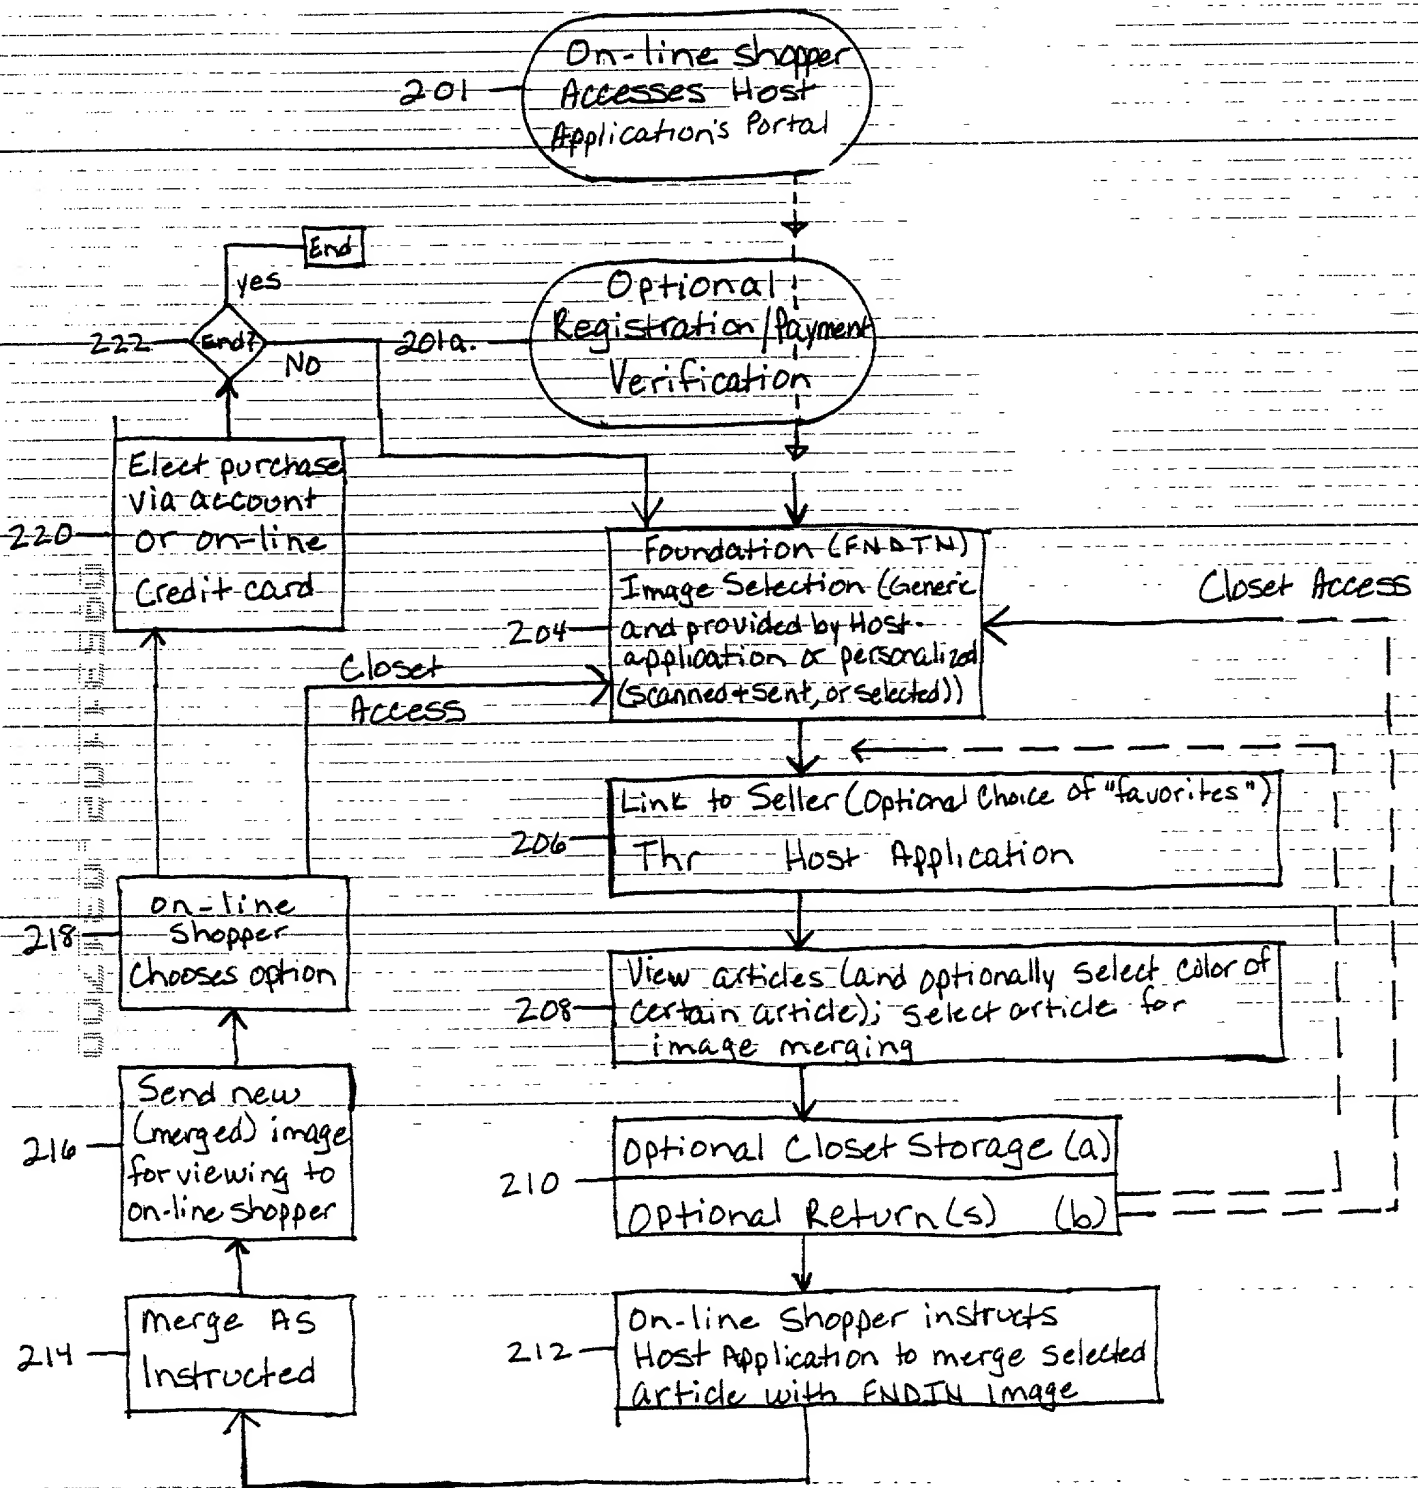 On-line shopper
201
Accesses Host
Application's Portal
End
yes
Optional
222
End?
201a.
Registration/Payment
No
Verification
Elect purchase
via account
220
or on-line
Credit card
Foundation (FNDTN)
Image Selection (Generic
Closet Access
204
and provided by Host-
application or personalized
(scanned+sent, or selected))
Closet
Access
Link to Seller (Optional Choice of "favorites")
206
Thr Host Application
on-line
218
Shopper
Chooses option
View articles (and optionally select color of
208
certain article); select article for
image merging
Send new
216
(merged) image
for viewing to
on-line shopper
Optional Closet Storage (a)
210
Optional Return(s) (b)
Merge As
214
Instructed
On-line Shopper instructs
212
Host Application to merge selected
article with FNDTN Image